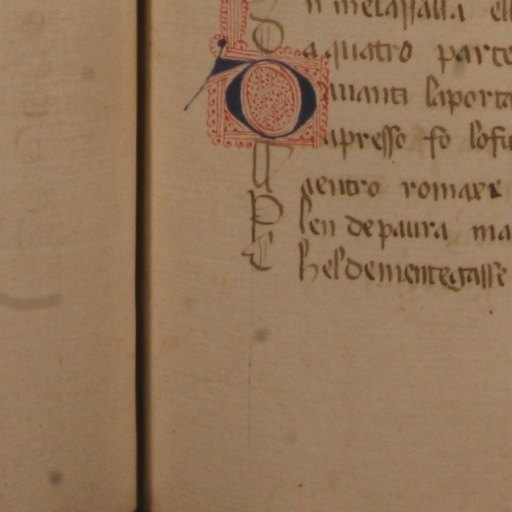 n melassalla ell
D a quatro parte
D auanti laporta
apresso fo lofu
U aentro romaxe
P len depaura ma
C hel dementegasse